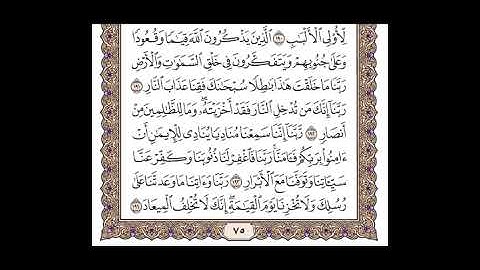 لِّأُو۟لِى ٱلْأَلْبَٰبِ ١٩٠ ٱلَّذِينَ يَذْكُرُونَ ٱللَّهَ قِيَٰمًا وَقُعُودًا
وَعَلَىٰ جُنُوبِهِمْ وَيَتَفَكَّرُونَ فِى خَلْقِ ٱلسَّمَٰوَٰتِ وَٱلْأَرْضِ
رَبَّنَا مَا خَلَقْتَ هَٰذَا بَٰطِلًا سُبْحَٰنَكَ فَقِنَا عَذَابَ ٱلنَّارِ ١٩١
رَبَّنَآ إِنَّكَ مَن تُدْخِلِ ٱلنَّارَ فَقَدْ أَخْزَيْتَهُۥ ۖ وَمَا لِلظَّٰلِمِينَ مِنْ
أَنصَارٍ ١٩٢ رَّبَّنَآ إِنَّنَا سَمِعْنَا مُنَادِيًا يُنَادِى لِلْإِيمَٰنِ أَنْ
ءَامِنُوا۟ بِرَبِّكُمْ فَـَٔامَنَّا ۚ رَبَّنَا فَٱغْفِرْ لَنَا ذُنُوبَنَا وَكَفِّرْ عَنَّا
سَيِّـَٔاتِنَا وَتَوَفَّنَا مَعَ ٱلْأَبْرَارِ ١٩٣ رَبَّنَا وَءَاتِنَا مَا وَعَدتَّنَا عَلَىٰ
رُسُلِكَ وَلَا تُخْزِنَا يَوْمَ ٱلْقِيَٰمَةِ ۗ إِنَّكَ لَا تُخْلِفُ ٱلْمِيعَادَ ١٩٤
٧٥